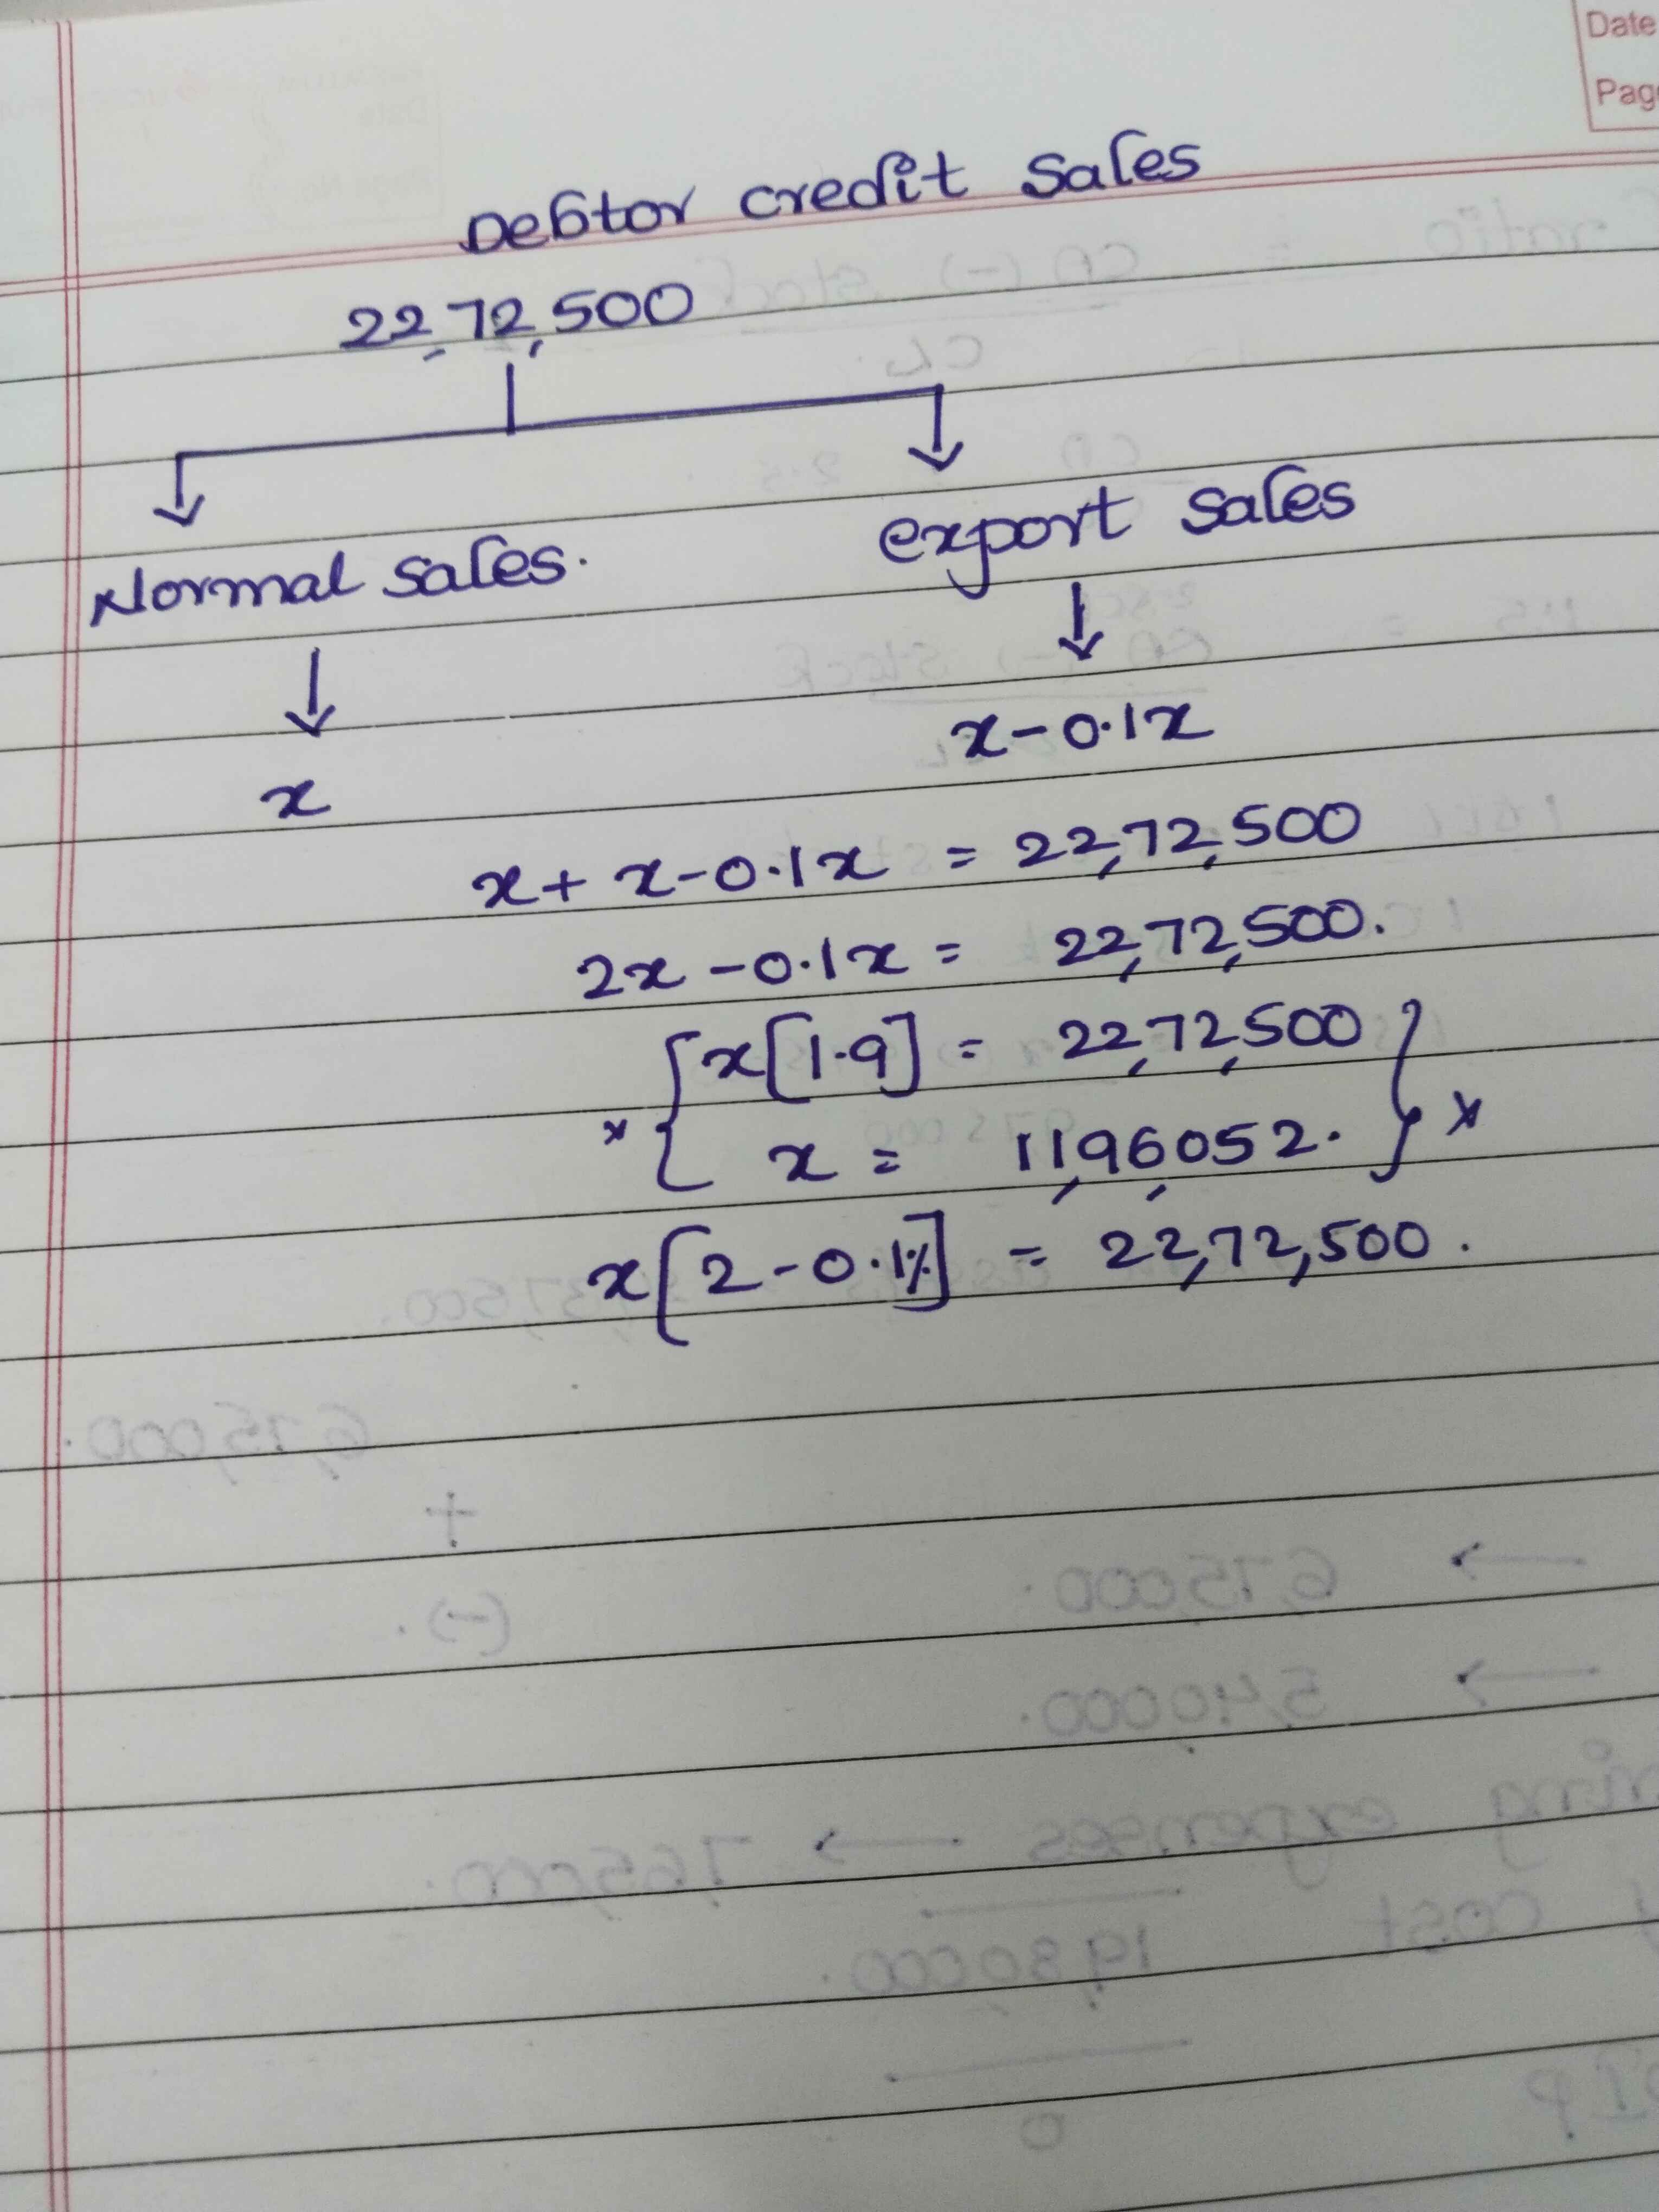 Date
Page
Debtor credit sales
22,72,500
Normal sales.
export sales
x
x-0.1x
x+ x-0.1x = 22,72,500
2x -0.1x = 22,72,500.
* { x[1.9] = 22,72,500 } *
x = 11,96,052.
x[2-0.1%] = 22,72,500.